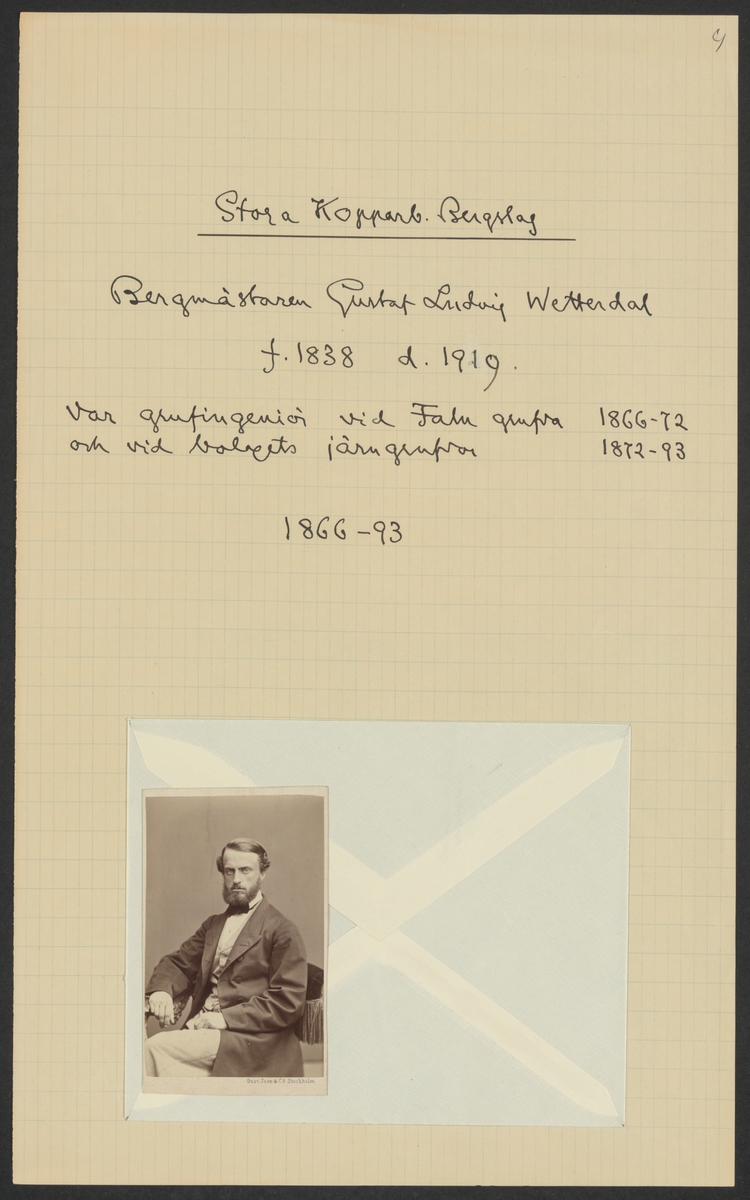 4
Stora Kopparb. Bergslag
Bergmästaren Gustaf Ludvig Wetterdal
f. 1838 d. 1919.
Var grufingeniör vid Falu grufva 1866-72
och vid bolagets järngrufvor 1872-93
1866-93
Gust. Joop & Co. Stockholm.